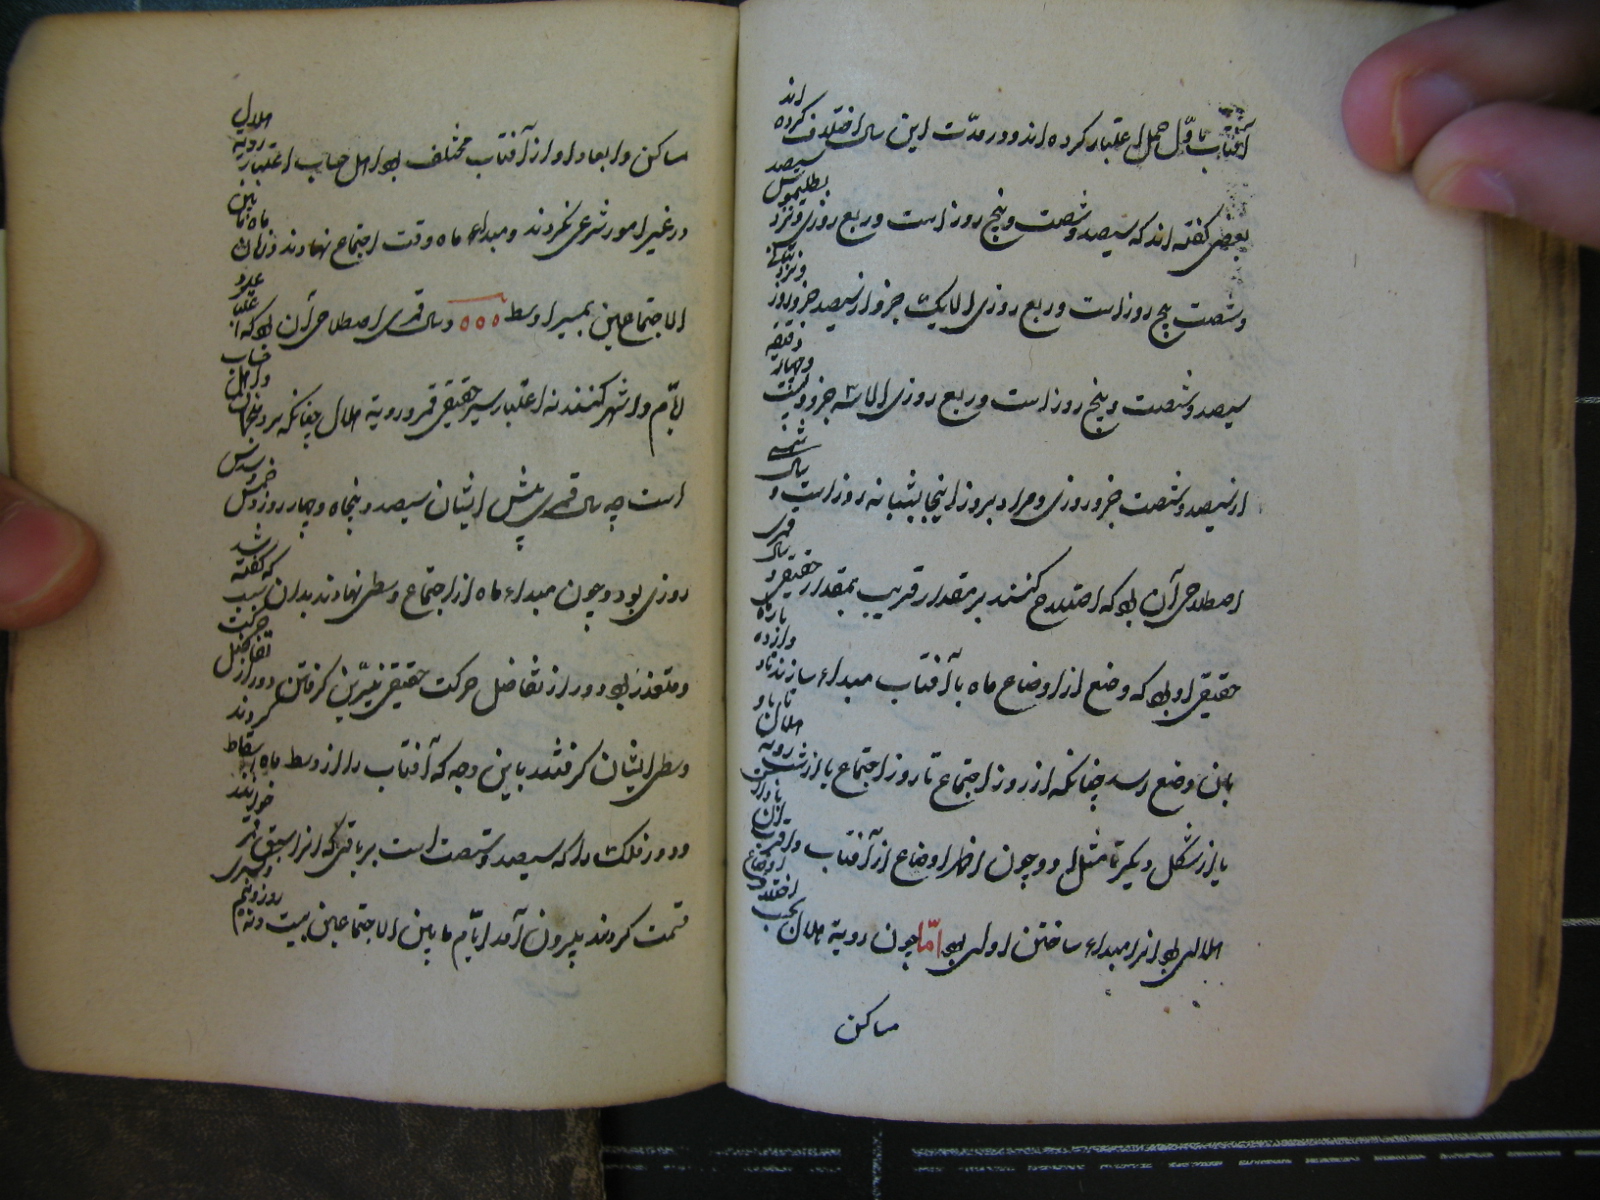 آفتاب باول حمل اعتبار کرده اند و در مدت این سال اختلاف کرده اند
بعضی گفته اند که سیصد و شصت و پنج روز است و ربع روزی و نزد بطلیموس سیصد
و شصت پنج روز است و ربع روزی الا یک جزو از سیصد جزو روز و نزد
سیصد و شصت و پنج روز است و ربع روزی الا سه جزو و بیست و چهار دقیقه
از سیصد و شصت جزو روزی و مراد بروز اینجا شبانه روز است و سال شمسی
اصطلاحی آن بود که اصطلاح کنند بر مقدار قریب بمقدار حقیقی و سال قمری
حقیقی او بود که وضع از اوضاع ماه با آفتاب مبداء سازند تا دوازده بار
بان وضع رسد چنانکه از روز اجتماع تا روز اجتماع یا از شب رویة هلال تا
یا از شکل دیگر تا مثل او و چون اظهر اوضاع از آفتاب و اقرب آن
هلالی بود انرا مبداء ساختن اولی بود اما چون رویة هلال بحسب اختلاف اوضاع
مساکن
مساکن و ابعاد او از آفتاب مختلف بود اهل حساب اعتبار رویة هلال
در غیر امور شرعی نکردند و مبداء ماه وقت اجتماع نهادند و زمان ماه مابین
الاجتماعین بمسیر اوسط ٥٥٥ و سال قمری اصطلاحی آن بود که اعتبار عدد
ایام و اشهر کنند نه اعتبار سیر حقیقی قمر و رویة هلال چنانکه نزد اهل حساب
است چه سال قمری پیش ایشان سیصد و پنجاه و چهار روز و خمس و سدس
روزی بود و چون مبداء ماه از اجتماع وسطی نهادند بدان سبب که گفته شد
و متعذر بود دور از تفاضل حرکت حقیقی نیرین گرفتن دور از تفاضل حرکت
وسطی ایشان گرفتند باین وجه که آفتاب را از وسط ماه اسقاط کردند
و دور فلک را که سیصد و شصت است بر باقی که انرا سبق قمر خوانند
قسمت کردند بیرون آمد ایام مابین الاجتماعین بیست و نه روز و نیم و